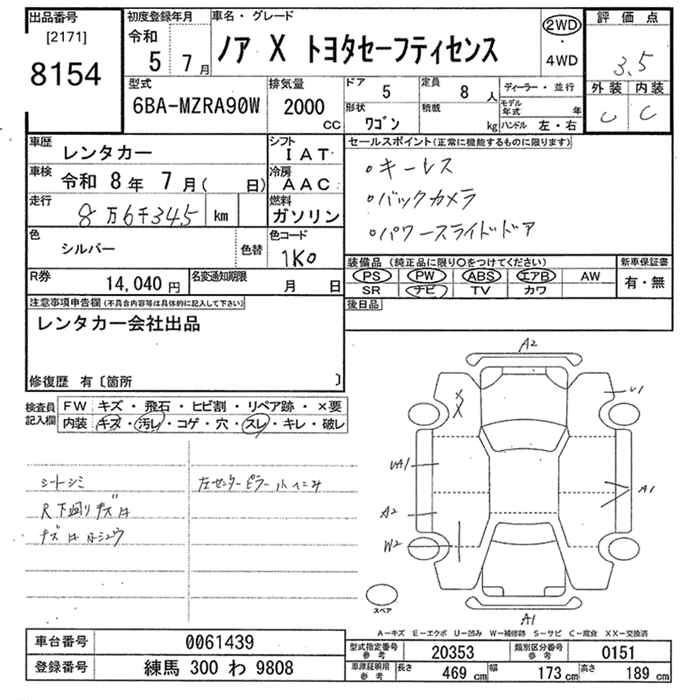 出品番号
[2171]
8154
初度登録年月
令和
5年 7月
車名・グレード
ノア X トヨタセーフティセンス
2WD
・
4WD
評価点
3.5
外装 内装
C C
型式
6BA-MZRA90W
排気量
2000
cc
ドア
5
定員
8人
形状
ワゴン
積載
kg
ディーラー・並行
モデル年式 年
ハンドル 左・右
車歴
レンタカー
シフト
IAT
車検
令和 8年 7月( 日)
冷房
AAC
走行
8万6千345 km
燃料
ガソリン
色
シルバー
色替
色コード
1K0
R券
14,040円
名変通知期限
月 日
セールスポイント(正常に機能するものに限ります)
・キーレス
・バックカメラ
・パワースライドドア
装備品(純正品に限り〇をつけてください)
新車保証書
PS PW ABS エアB AW
SR ナビ TV カワ
有・無
後日品
注意事項申告欄(不具合内容等は具体的に記入して下さい)
レンタカー会社出品
修復歴 有〔箇所 〕
検査員記入欄
FW キズ・飛石・ヒビ割・リペア跡・×要
内装 キズ・汚レ・コゲ・穴・スレ・キレ・破レ
シートシミ
左センターピラー小ヘコミ
R下廻りキズ
A2
U1
XX
UA1
A1
A2
W2
A1
スペア
A-キズ E-エクボ U-凹み W-補修跡 S-サビ C-腐食 XX-交換済
車台番号
0061439
登録番号
練馬 300 わ 9808
型式指定番号
参考
20353
類別区分番号
参考
0151
車庫証明用
参考
長さ
469 cm
幅
173 cm
高さ
189 cm